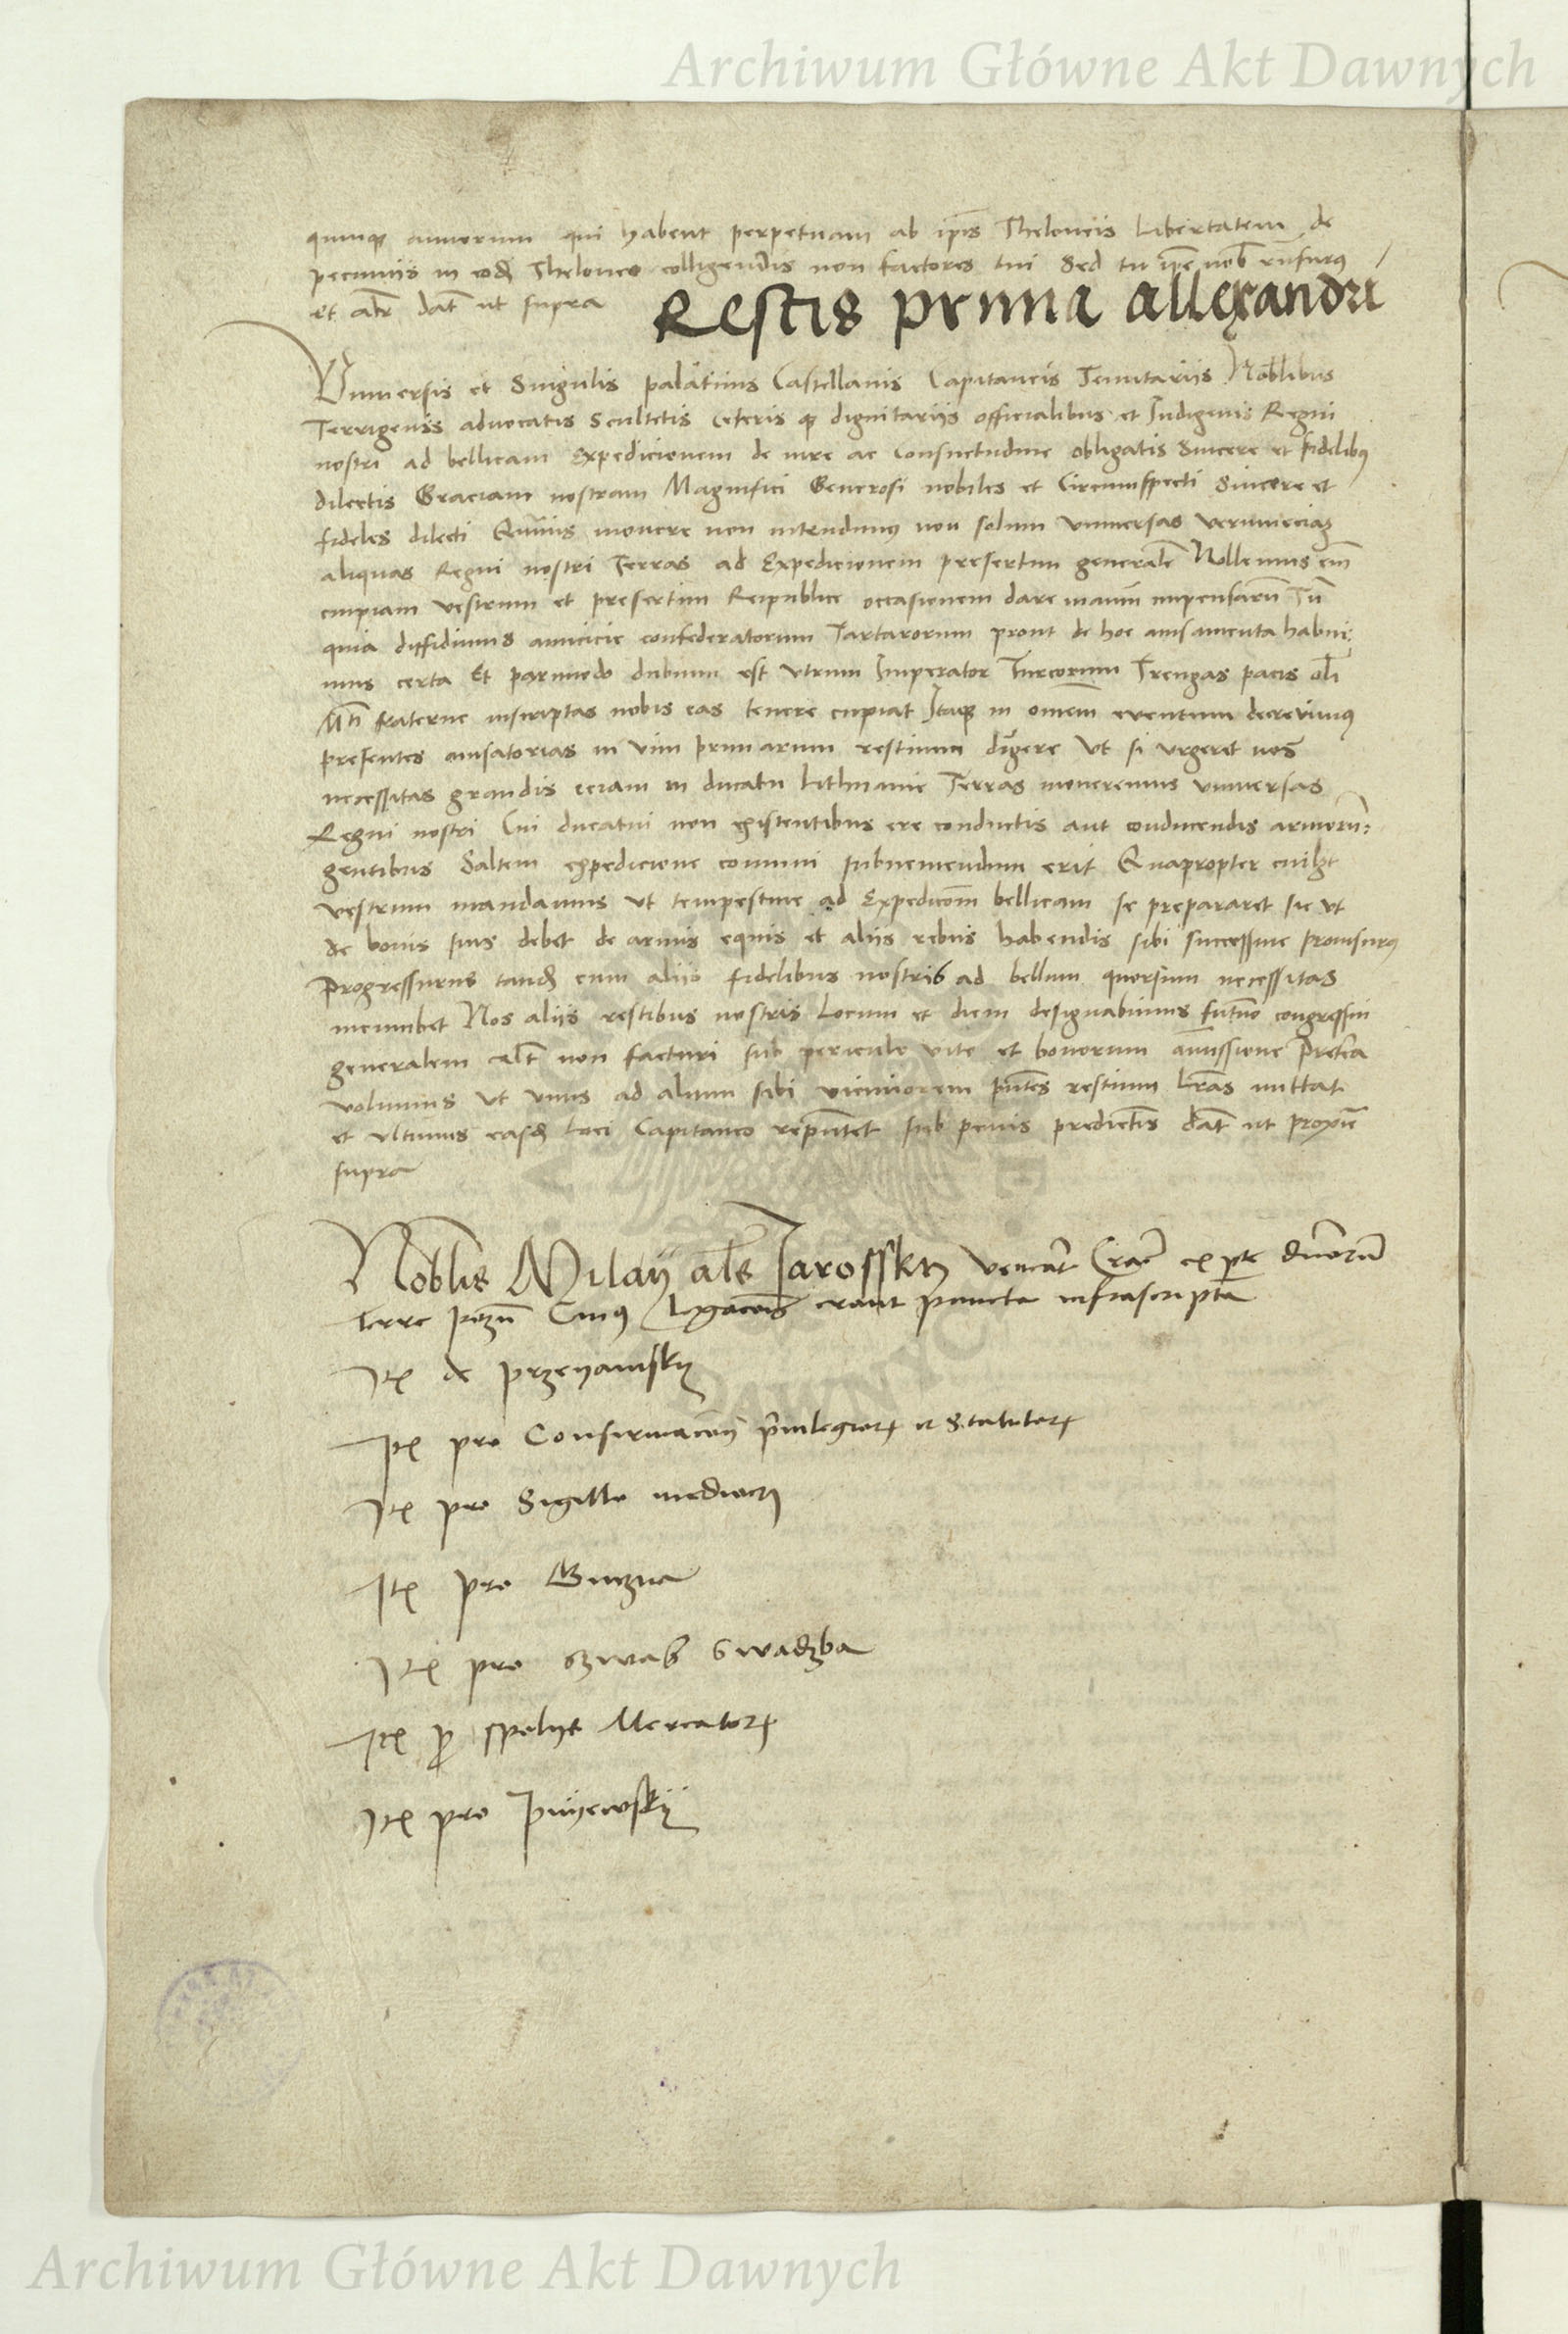 Archiwum Główne Akt Dawnych
quinqꝫ annorum qui habent perpetuam ab ip̄is Theloneis Libertatem de
pecuniis in eodꝫ Theloneo colligendis non factores tui Sed tu ip̄e nob̄
et alr̄ dat̄ ut supra Restis prima allexandri
Vniversis et Singulis palatinis Castellanis Capitaneis Tenutariis Nobilibus
Terrigenis advocatis Scultetis Ceteris qꝫ dignitariis officialibus et Indigenis Regni
nostri ad bellicam Expedicionem de iure ac Consuetudine obligatis Sincere et fidelibꝰ
dilectis Graciam nostram Magnifici Generosi nobiles et Circumspecti Sincere et
fideles dilecti Quāvis movere non intendimꝰ non solum vniversas verumeciaꝫ
aliquas Regni nostri Terras ad Expedicionem presertim generalē Nollemus em̄
cuipiam vestrum et presertim Reipublice occasionem dare inaniū impensarū Tū
quia diffidimus amicicie confederatorum Tartarorum prout de hoc avisamenta habui:
mus certa Et parmodo dubium est vtrum Imperator Turcorum Treugas pacis oli
Mti fraterne inscriptas nobis eas tenere cupiat Itaqꝫ in omēm eventum decrevimꝰ
presentes avisatorias in vim primarum restium dīgere Vt si vrgeret nos
necessitas grandis eciam in ducatu Lithuanie Terras moveremus vniversas
Regni nostri Cui ducatui non existentibus ere conductis aut conducendis armorū:
gentibus Saltem expedicione comuni subveniendum erit Quapropter cuilꝫt
vestrum mandamus vt tempestive ad Expedicōm bellicam se prepararet sic vt
de bonis suis debet de armis equis et aliis rebus habendis sibi successive provisurꝰ
Progressurus tandꝫ cum aliis fidelibus nostris ad bellum quorsum necessitas
incumbet Nos aliis restibus nostris Locum et diem designabimus futuro congressui
generalem alr̄ non facturi sub periculo vite et bonorum amissione Pretēa
volumus vt vnus ad alium sibi viciniorem p̄ntes restium lr̄as mittat
et vltimus easdꝫ loci Capitaneo rep̄ntet sub penis predictis dat̄ ut proxīe
supra
Nobilis Milaÿ al̄s Jarosskÿ venerat Crac̄ ex pte dnorū
terre pozn̄ Cuiꝰ legacōis erant puncta infrascripta
Itꝫ de przeyamsky
Itꝫ pro Confirmacōe privilegiorꝫ et Statutorꝫ
Itꝫ pro Sigillo mediocri
Itꝫ pro
Itꝫ pro Swadzba
Itꝫ p̄ spolys Mercatorꝫ
Itꝫ pro pnÿewskÿ
Archiwum Główne Akt Dawnych